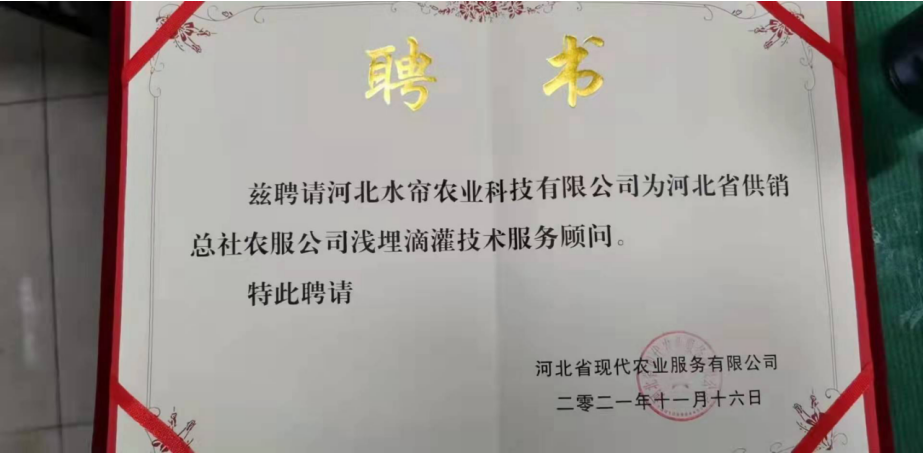 聘书
兹聘请河北水帘农业科技有限公司为河北省供销
总社农服公司浅埋滴灌技术服务顾问。
特此聘请
河北省现代农业服务有限公司
二零二一年十一月十六日